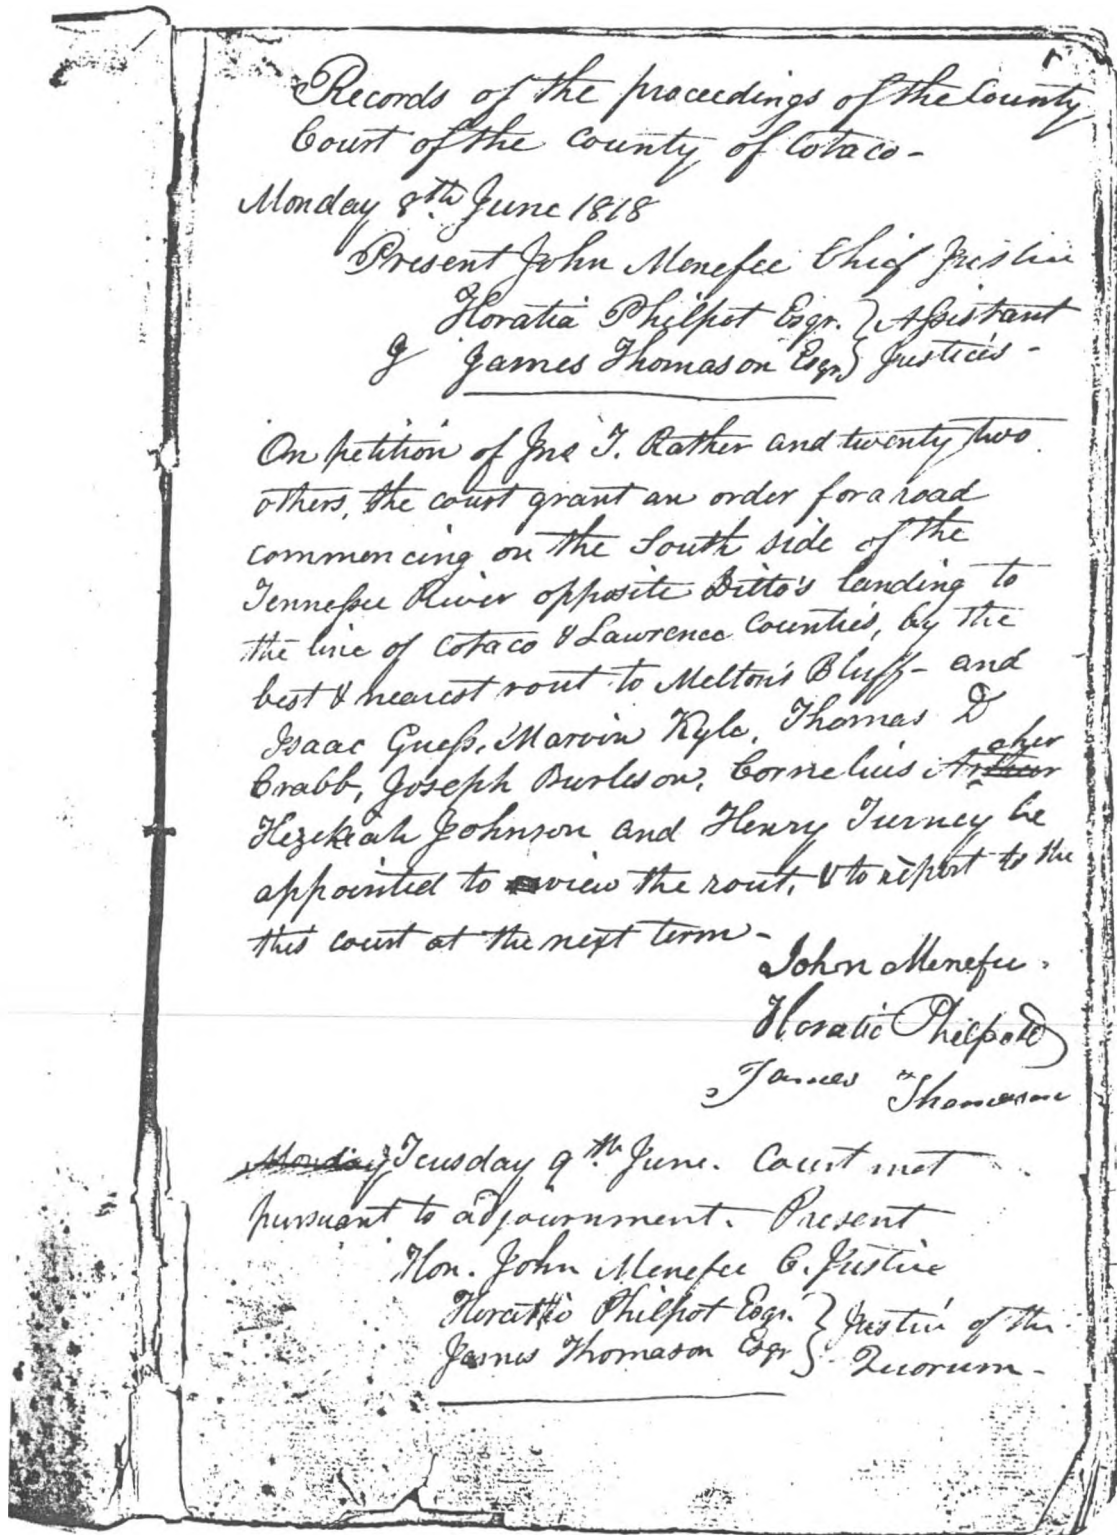 Records of the proceedings of the County
Court of the County of Cotaco -
Monday 8th June 1818
Present John Menefee Chief Justice
Horatia Philpot Esqr. } Assistant
& James Thomason Esqr } Justice's -
On petition of Jno T. Rather and twenty two
others, the court grant an order for a road
commencing on the South side of the
Tennessee River opposite Ditto's landing to
the line of Cotaco & Lawrence Counties, by the
best & nearest rout to Melton's Bluff - and
Isaac Guess, Marvin Kyle, Thomas D
Crabb, Joseph Burleson, Cornelius Arther cher
Hezekiah Johnson and Henry Turney be
appointed to view the rout, & to report to the
this court at the next term -
John Menefee.
Horatio Philpott
James Thomason
Monday Teusday 9th June. Court met
pursuant to adjournment. Present
Hon. John Menefee C. Justice
Horattio Philpot Esqr. } Justice of the
James Thomason Esqr } Quorum -